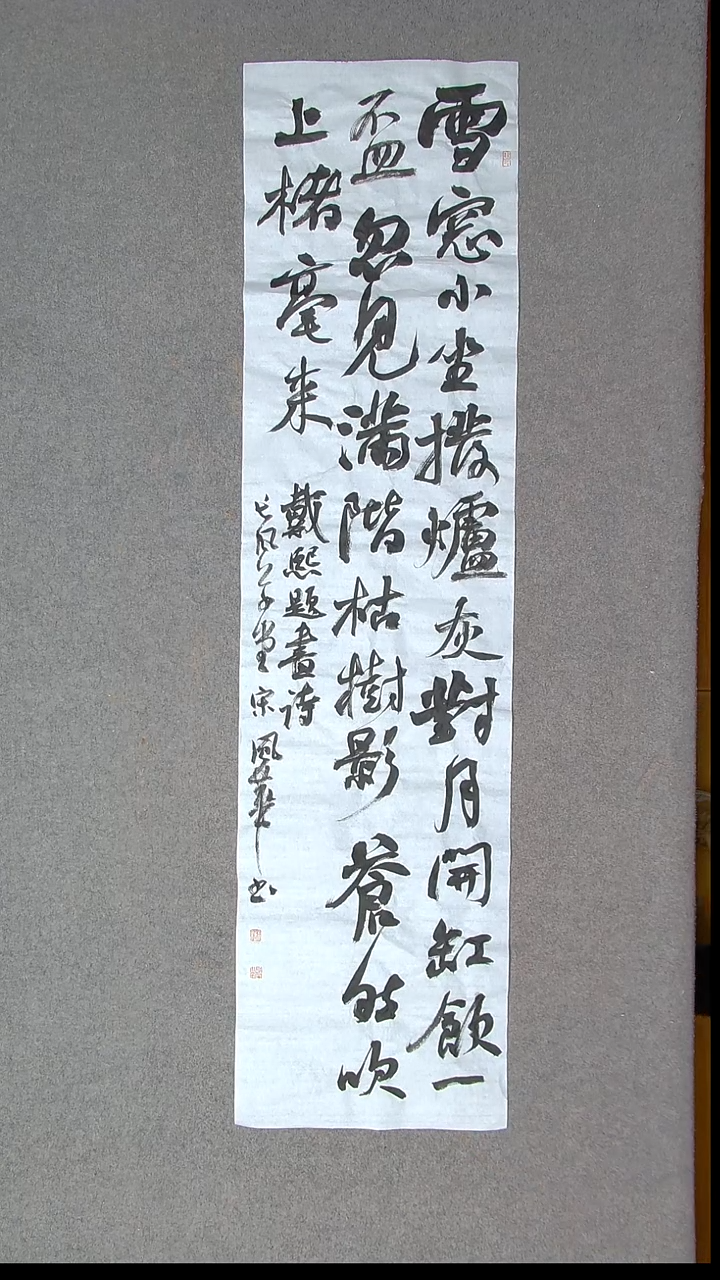 雪窓小坐撥爐灰對月開缸飲一
盃忽見滿階枯樹影蒼然吹
上楮毫來
戴熙題畫詩
風草堂宋風華書